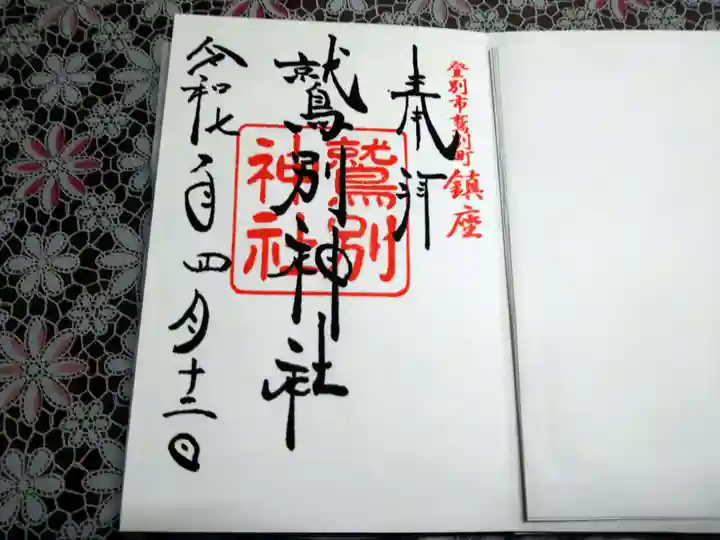 登別市鷲別町鎮座
奉拝
鷲別神社
鷲別
神社
令和七年四月十二日